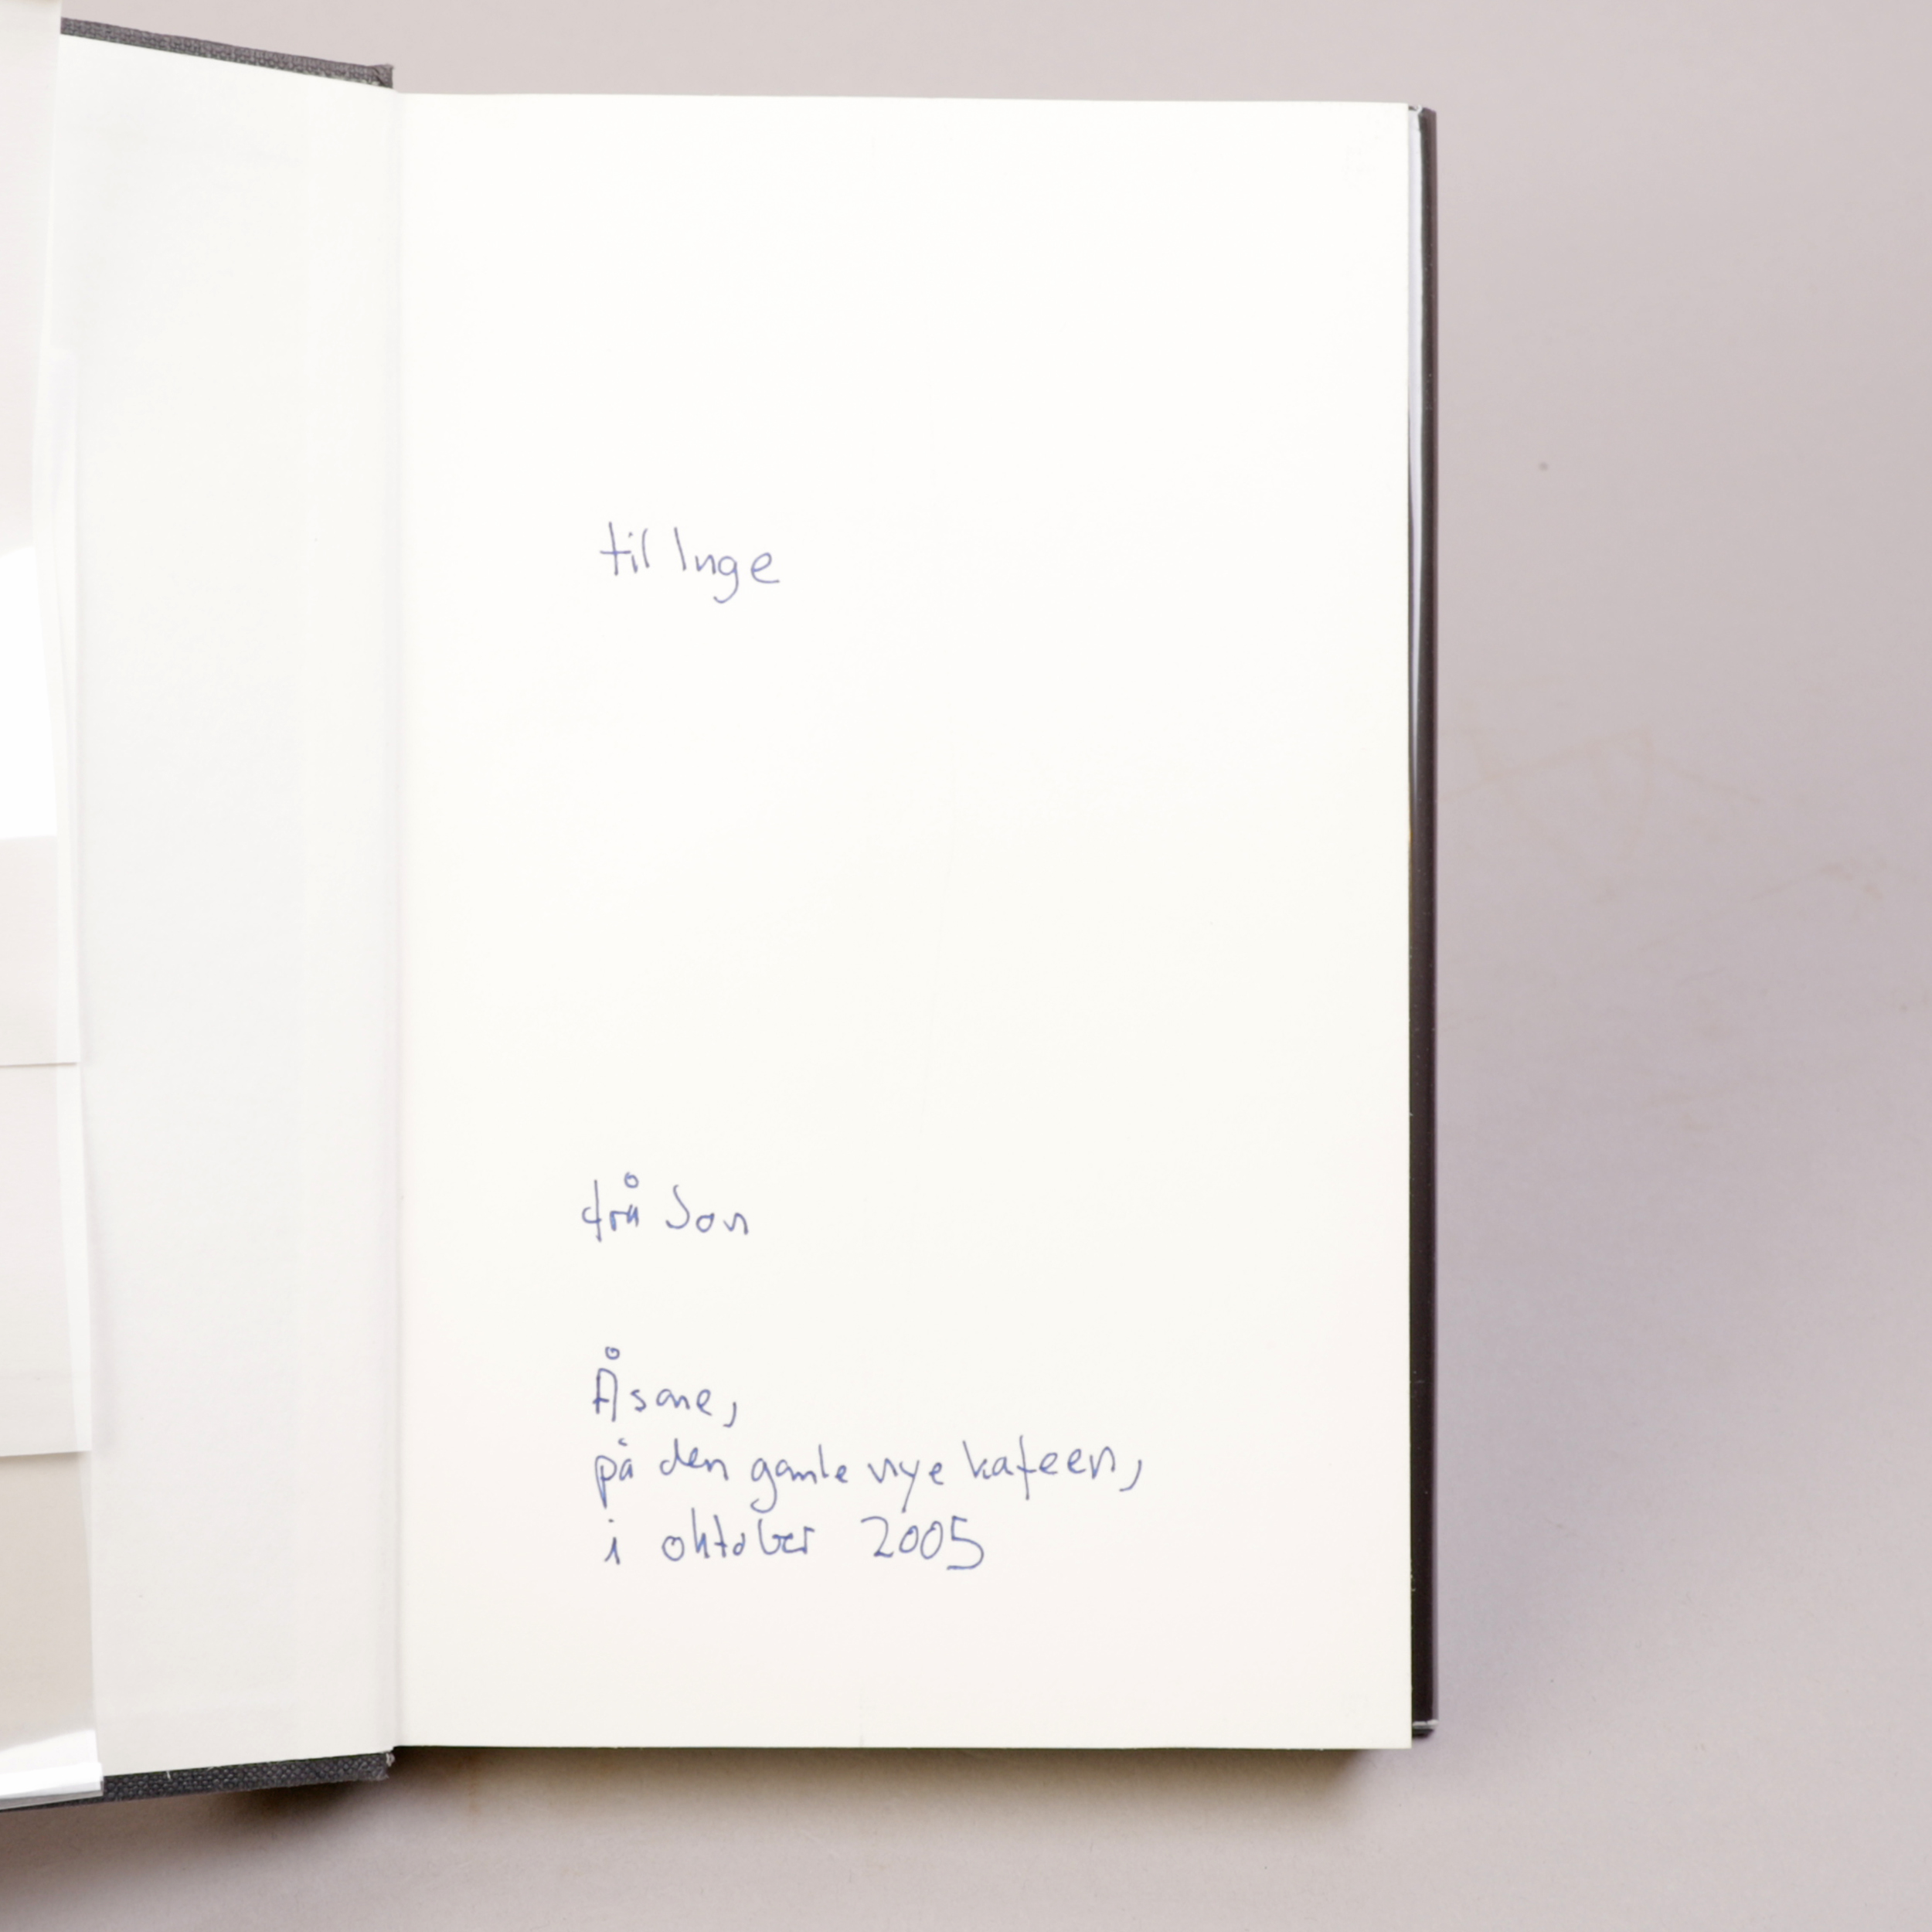 til Inge
frå Jon
Åsane,
på den gamle nye kafeen,
i oktober 2005